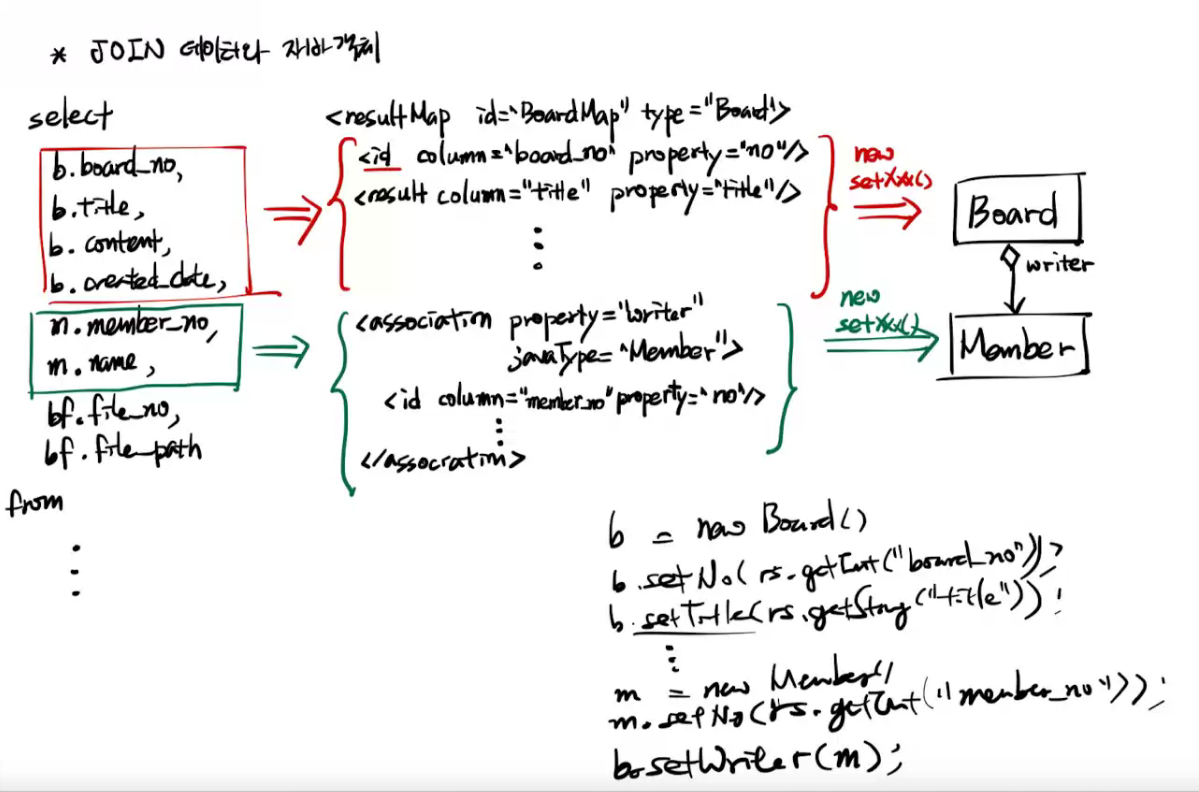 * JOIN 데이터와 자바객체
select
b.board_no,
b.title,
b. content,
b. created_date,
m.member_no,
m. name,
bf.file_no,
bf.file_path
from
<resultMap id="BoardMap" type="Board">
<id column="board_no" property="no"/>
<result column="title" property="title"/>
<association property="writer"
javaType="Member">
<id column="member_no" property="no"/>
</association>
new
setXxx()
new
setXxx()
Board
writer
Member
b = new Board()
b.setNo(rs.getInt("board_no"));
b.setTitle(rs.getString("title"));
m = new Member()
m.setNo(rs.getInt("member_no"));
b.setWriter(m);